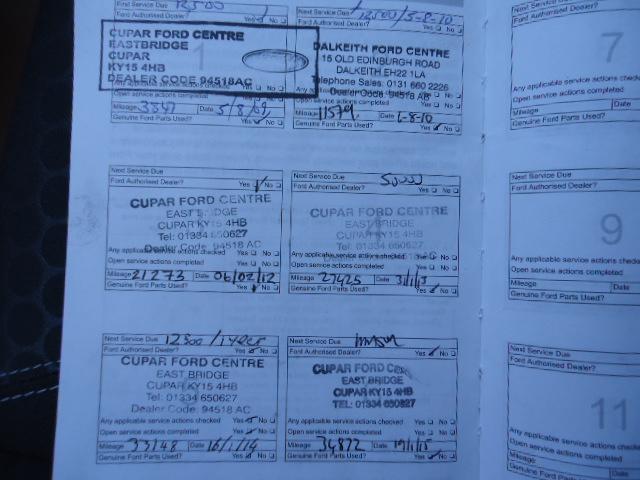 First Service Due 12500
Ford Authorised Dealer? Yes No
CUPAR FORD CENTRE
EASTBRIDGE
CUPAR
KY15 4HB
DEALER CODE 94518AC
Open service actions completed
Mileage 3347 Date 5/8/09
Genuine Ford Parts Used? Yes No
Next Service Due 12500/5-8-10
Ford Authorised Dealer? Yes No
DALKEITH FORD CENTRE
15 OLD EDINBURGH ROAD
DALKEITH EH22 1LA
Telephone Sales: 0131 660 2226
Dealer Code 94518 AB
Open service actions completed
Mileage 11579 Date 2-8-10
Genuine Ford Parts Used? Yes No
Next Service Due
Ford Authorised Dealer? Yes No
CUPAR FORD CENTRE
EAST BRIDGE
CUPAR KY15 4HB
Tel: 01334 650627
Dealer Code: 94518 AC
Any applicable service actions checked
Open service actions completed
Mileage 21273 Date 06/02/12
Genuine Ford Parts Used? Yes No
Next Service Due 50000
Ford Authorised Dealer? Yes No
CUPAR FORD CENTRE
EAST BRIDGE
CUPAR KY15 4HB
Tel: 01334 650627
Any applicable service actions checked
Open service actions completed
Mileage 27425 Date 3/1/13
Genuine Ford Parts Used? Yes No
Next Service Due 12500/1year
Ford Authorised Dealer? Yes No
CUPAR FORD CENTRE
EAST BRIDGE
CUPAR KY15 4HB
Tel: 01334 650627
Dealer Code: 94518 AC
Any applicable service actions checked Yes No
Open service actions completed Yes No
Mileage 33148 Date 16/1/14
Genuine Ford Parts Used? Yes No
Next Service Due
Ford Authorised Dealer? Yes No
CUPAR FORD
EAST BRIDGE
CUPAR KY15 4HB
TEL: 01334 650627
Any applicable service actions checked Yes No
Open service actions completed Yes No
Mileage 34872 Date 19/1/15
Genuine Ford Parts Used? Yes No
7
Any applicable service actions
Open service actions completed
Mileage
Genuine Ford Parts Used?
Next Service Due
Ford Authorised Dealer?
9
Any applicable service actions ch
Open service actions completed
Mileage
Genuine Ford Parts Used?
Next Service Due
Ford Authorised Dealer?
11
Any applicable service actions ch
Open service actions completed
Mileage Date
Genuine Ford Parts Used?